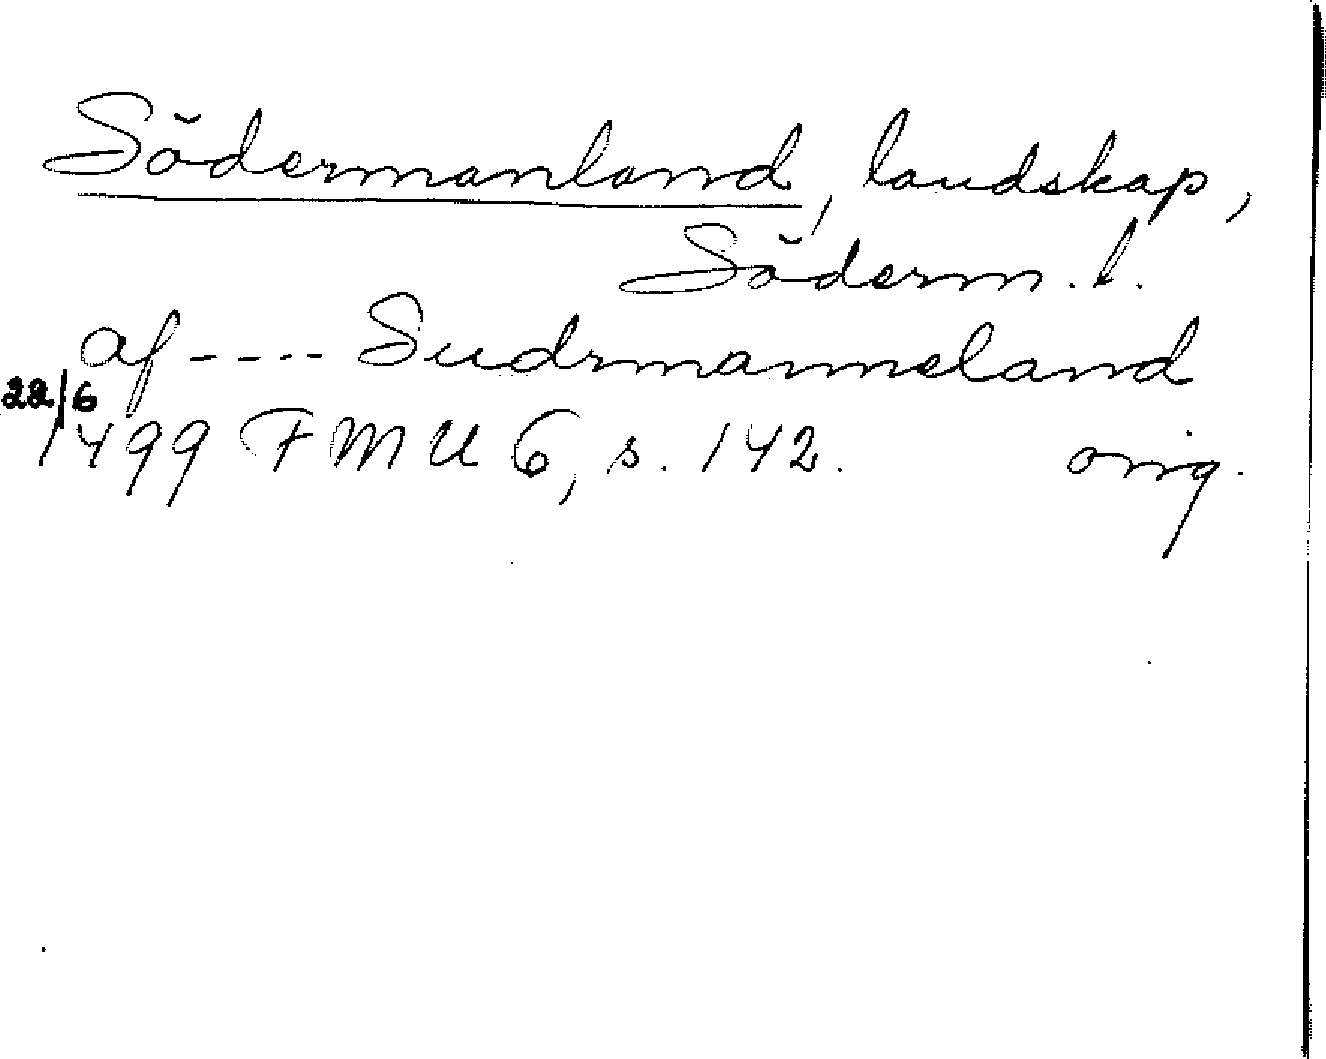 Södermanland, landskap,
Söderm. l.
af ---- Sudrmanneland
22/6
1499 FMU 6, s. 142. orig.